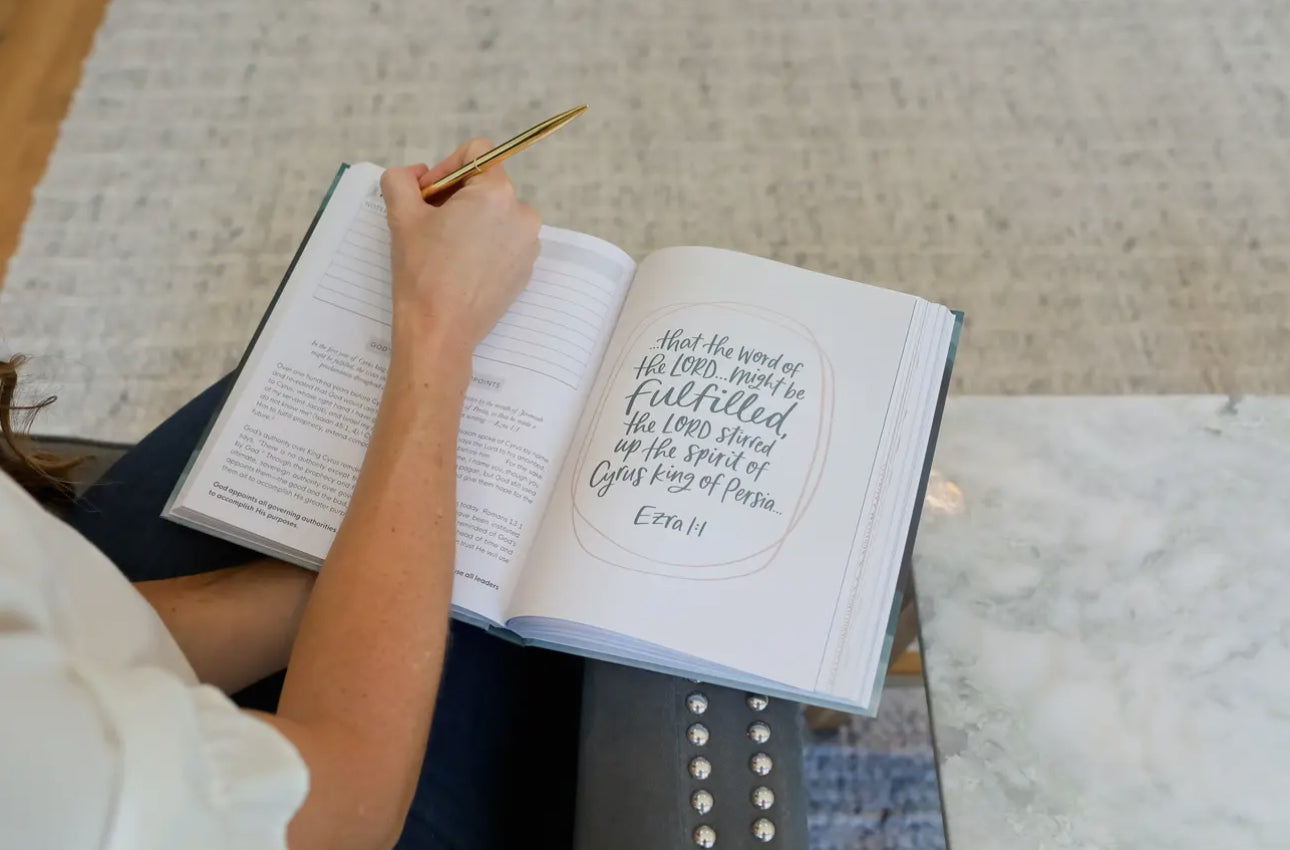 NOTES
GOD'
POINTS
In the first year of Cyrus
might be fulfilled, the LORD
proclamation throughout
to the mouth of Jeremiah
of Persia, so that he made a
writing —Ezra 1:1
Over one hundred years before Cy
and revealed that God would use
to Cyrus, whose right hand I have
of my servant Jacob, and Israel my
do not know me" (Isaiah 45:1, 4).
Him to fulfill prophecy, extend comp
future.
spoke of Cyrus by name
says the Lord to his anointed,
For the sake
I name you, though you
pagan, but God still used
and give them hope for the
God's authority over King Cyrus remain
says, "There is no authority except
by God." Through the prophecy and
ultimate, sovereign authority over
appoints them—the good and the bad
them all to accomplish His greater purp
today. Romans 13:1
have been instituted
reminded of God's
head of time and
trust He will use
God appoints all governing authorities
to accomplish His purposes.
use all leaders
...that the word of
the LORD...might be
fulfilled,
the LORD stirred
up the spirit of
Cyrus king of Persia...
Ezra 1:1